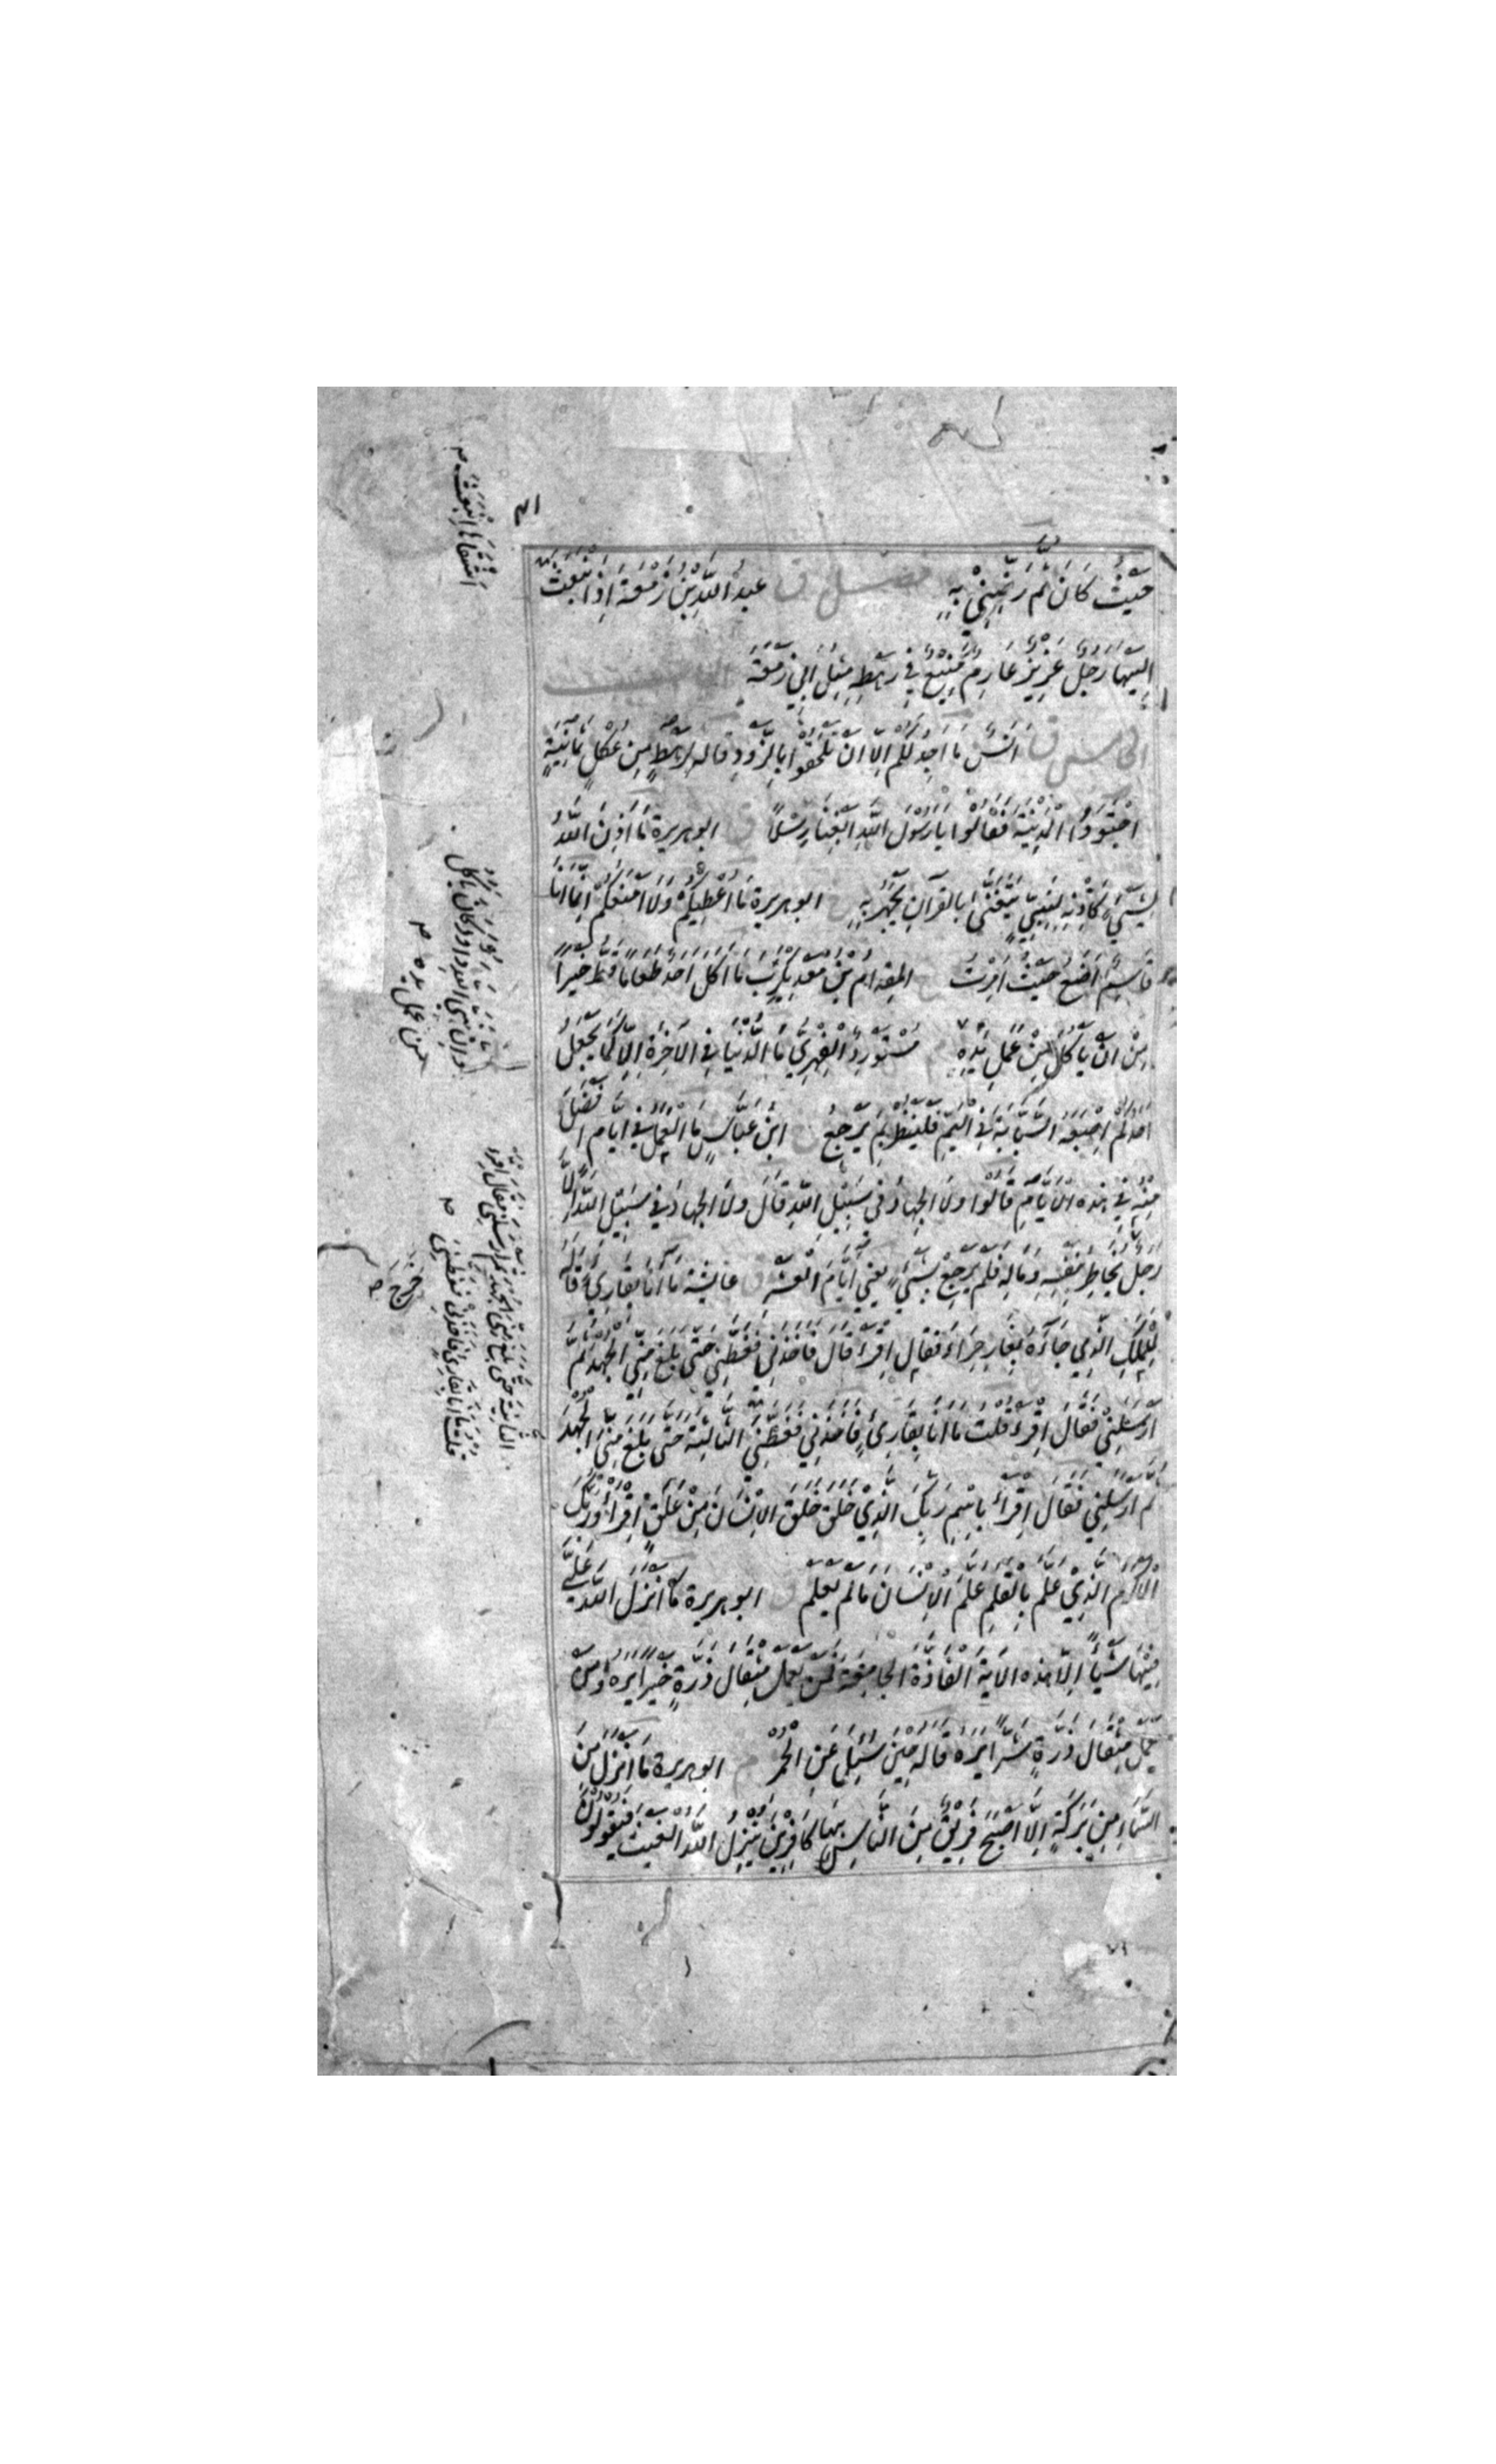 حَيْثُ كَانَ ثُمَّ رَضِّنِيْ بِهٖ فصل ق عبدُ اللّٰهِ بْنُ زَمْعَةَ اِذِ انْبَعَثَ
اِلَيْهَا رَجُلٌ عَزِيْزٌ عَارِمٌ مَنِيْعٌ فِيْ رَهْطِهٖ مِثْلُ اَبِيْ زَمْعَةَ
ق اَنَسٌ مَا اَجِدُ لَكُمْ اِلَّا اَنْ تَلْحَقُوْا بِالذَّوْدِ قاله لِرَهْطٍ مِنْ عُكْلٍ ثَمَانِيَةٍ
اجْتَوَوُا الْمَدِيْنَةَ فَقَالُوْا يَا رَسُوْلَ اللّٰهِ ابْغِنَا رِسْلًا ق ابو هريرة مَا اَذِنَ اللّٰهُ
لِشَيْءٍ كَاَذَنِهٖ لِنَبِيٍّ يَتَغَنّٰى بِالْقُرْآنِ يَجْهَرُ بِهٖ ابو هريرة مَا اُعْطِيْكُمْ وَلَا اَمْنَعُكُمْ اِنَّمَا اَنَا
قَاسِمٌ اَضَعُ حَيْثُ اُمِرْتُ المِقْدَام بن مَعْدِيكَرِبَ مَا اَكَلَ اَحَدٌ طَعَامًا قَطُّ خَيْرًا
مِنْ اَنْ يَأْكُلَ مِنْ عَمَلِ يَدِهٖ مُسْتَوْرِدُ الْفِهْرِيُّ مَا الدُّنْيَا فِي الْاٰخِرَةِ اِلَّا كَمَا يَجْعَلُ
اَحَدُكُمْ اِصْبَعَهُ السَّبَّابَةَ فِي الْيَمِّ فَلْيَنْظُرْ بِمَ يَرْجِعُ ابْنُ عَبَّاسٍ مَا الْعَمَلُ فِيْ اَيَّامٍ اَفْضَلَ
مِنْهُ فِيْ هٰذِهِ الْاَيَّامِ قَالُوْا وَلَا الْجِهَادُ فِيْ سَبِيْلِ اللّٰهِ قَالَ وَلَا الْجِهَادُ فِيْ سَبِيْلِ اللّٰهِ اِلَّا
رَجُلٌ يُخَاطِرُ بِنَفْسِهٖ وَمَالِهٖ فَلَمْ يَرْجِعْ بِشَيْءٍ يعني اَيَّامَ الْعَشْرِ ق عائشة مَا اَنَا بِقَارِئٍ قَالَهُ
لِلْمَلَكِ الَّذِيْ جَاءَهُ بِغَارِ حِرَاءَ فَقَالَ اِقْرَأْ قَالَ فَاَخَذَنِيْ فَغَطَّنِيْ حَتّٰى بَلَغَ مِنِّي الْجَهْدَ ثُمَّ
اَرْسَلَنِيْ فَقَالَ اِقْرَأْ قُلْتُ مَا اَنَا بِقَارِئٍ فَاَخَذَنِيْ فَغَطَّنِيَ الثَّالِثَةَ حَتّٰى بَلَغَ مِنِّي الْجَهْدَ
ثُمَّ اَرْسَلَنِيْ فَقَالَ اِقْرَأْ بِاسْمِ رَبِّكَ الَّذِيْ خَلَقَ خَلَقَ الْاِنْسَانَ مِنْ عَلَقٍ اِقْرَأْ وَرَبُّكَ
الْاَكْرَمُ الَّذِيْ عَلَّمَ بِالْقَلَمِ عَلَّمَ الْاِنْسَانَ مَا لَمْ يَعْلَمْ ق ابو هريرة مَا اَنْزَلَ اللّٰهُ عَلَيَّ
فِيْهَا شَيْئًا اِلَّا هٰذِهِ الْاٰيَةَ الْفَاذَّةَ الْجَامِعَةَ فَمَنْ يَعْمَلْ مِثْقَالَ ذَرَّةٍ خَيْرًا يَرَهُ وَمَنْ
يَعْمَلْ مِثْقَالَ ذَرَّةٍ شَرًّا يَرَهُ قَالَهُ حِيْنَ سُئِلَ عَنِ الْحُمُرِ م ابو هريرة مَا اَنْزَلَ مِنَ
السَّمَاءِ مِنْ بَرَكَةٍ اِلَّا اَصْبَحَ فَرِيْقٌ مِنَ النَّاسِ بِهَا كَافِرِيْنَ يُنْزِلُ اللّٰهُ الْغَيْثَ فَيَقُوْلُوْنَ
اَشْقَاهَا انْبَعَثَ
وَاِنَّ نَبِيَّ اللّٰهِ دَاوُدَ كَانَ يَأْكُلُ
مِنْ عَمَلِ يَدِهٖ
قُلْتُ مَا اَنَا بِقَارِئٍ فَاَخَذَنِيْ فَغَطَّنِيَ
الثَّانِيَةَ حَتّٰى بَلَغَ مِنِّي الْجَهْدَ ثُمَّ اَرْسَلَنِيْ فَقَالَ اِقْرَأْ
خَرَجَ